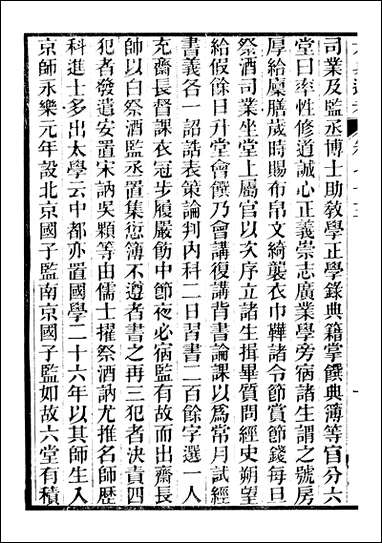 司業及監丞博士助敎學正學錄典籍掌饌典簿等官分六
堂曰率性修道誠心正義崇志廣業學旁宿諸生謂之號房
厚給廩膳歲時賜布帛文綺襲衣巾鞾諸令節賞節錢每旦
祭酒司業坐堂上屬官以次序立諸生揖畢質問經史朔望
給假餘日升堂會饌乃會講復講背書論課以爲常月試經
書義各一詔誥表策論判內科二日習書二百餘字選一人
充齋長督課衣冠步履嚴飭中節夜必宿監有故而出齋長
帥以白祭酒監丞置集愆簿不遵者書之再三犯者決責四
犯者發遣安置宋訥吳顒等由儒士擢祭酒訥尤推名師歷
科進士多出太學云中都亦置國學二十六年以其師生入
京師永樂元年設北京國子監南京國子監如故六堂有積